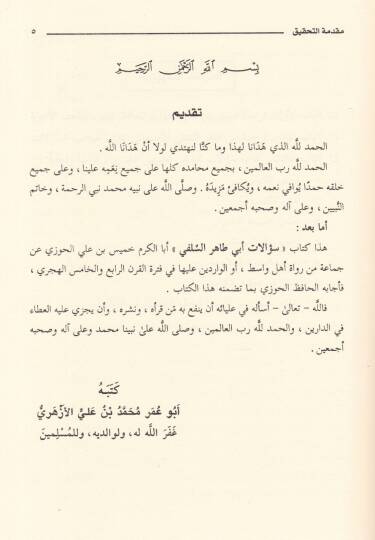 مقدمة التحقيق ٥
بسم الله الرحمن الرحيم
تقديم
الحمد لله الذي هَدَانا لهذا وما كنَّا لنهتدي لولا أنْ هَدَانَا اللَّه .
الحمد للَّه رب العالمين ، بجميع محامده كلها على جميع نِعَمِه علينا ، وعلى جميع
خلقه حمدًا يُوافي نعمه ، ويُكافئ مَزِيدَهُ . وصلَّى اللَّه على نبيه محمد نبي الرحمة ، وخاتم
النَّبيين ، وعلى آله وصحبه أجمعين .
أما بعد :
هذا كتاب « سؤالات أبي طاهر السِّلفي » أبا الكرم خميس بن علي الحوزي عن
جماعة من رواة أهل واسط ، أو الواردين عليها في فترة القرن الرابع والخامس الهجري ،
فأجابه الحافظ الحوزي بما تضمنه هذا الكتاب .
فاللَّه – تعالىٰ – أسأله في عليائه أن ينفع به مَن قرأه ، ونشره ، وأن يجزي عليه العطاء
في الدارين ، والحمد للَّه رب العالمين ، وصلى اللَّه علىٰ نبينا محمد وعلى آله وصحبه
أجمعين .
كَتَبَهُ
أَبُو عُمَر مُحَمَّد بْنُ عَليٍّ الأزْهَريُّ
غَفَرَ اللَّه له، ولوالديه، وللمُسْلِمينَ